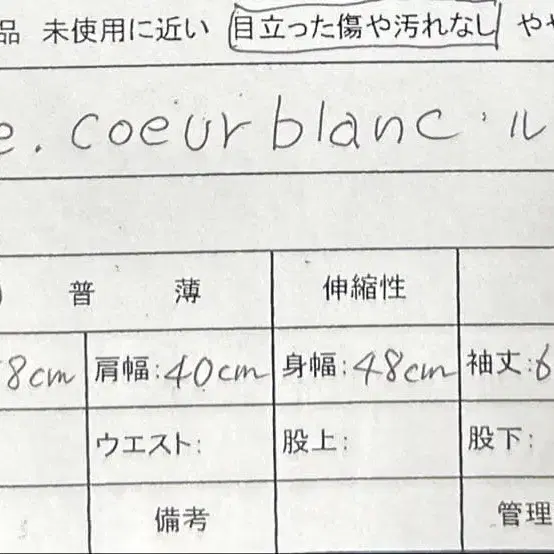 品 未使用に近い 目立った傷や汚れなし やや
e. coeur blanc・ル
普 薄 伸縮性
8cm 肩幅:40cm 身幅:48cm 袖丈:6
ウエスト: 股上: 股下:
備考 管理